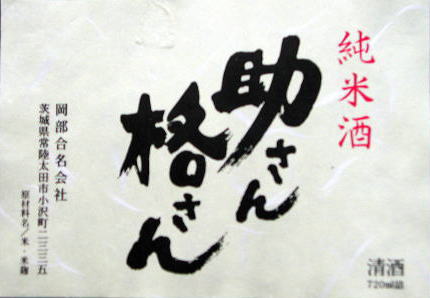 純米酒
助さん
格さん
岡部合名会社
茨城県常陸太田市小沢町二三三五
原材料名／米・米麹
清酒
720ml詰